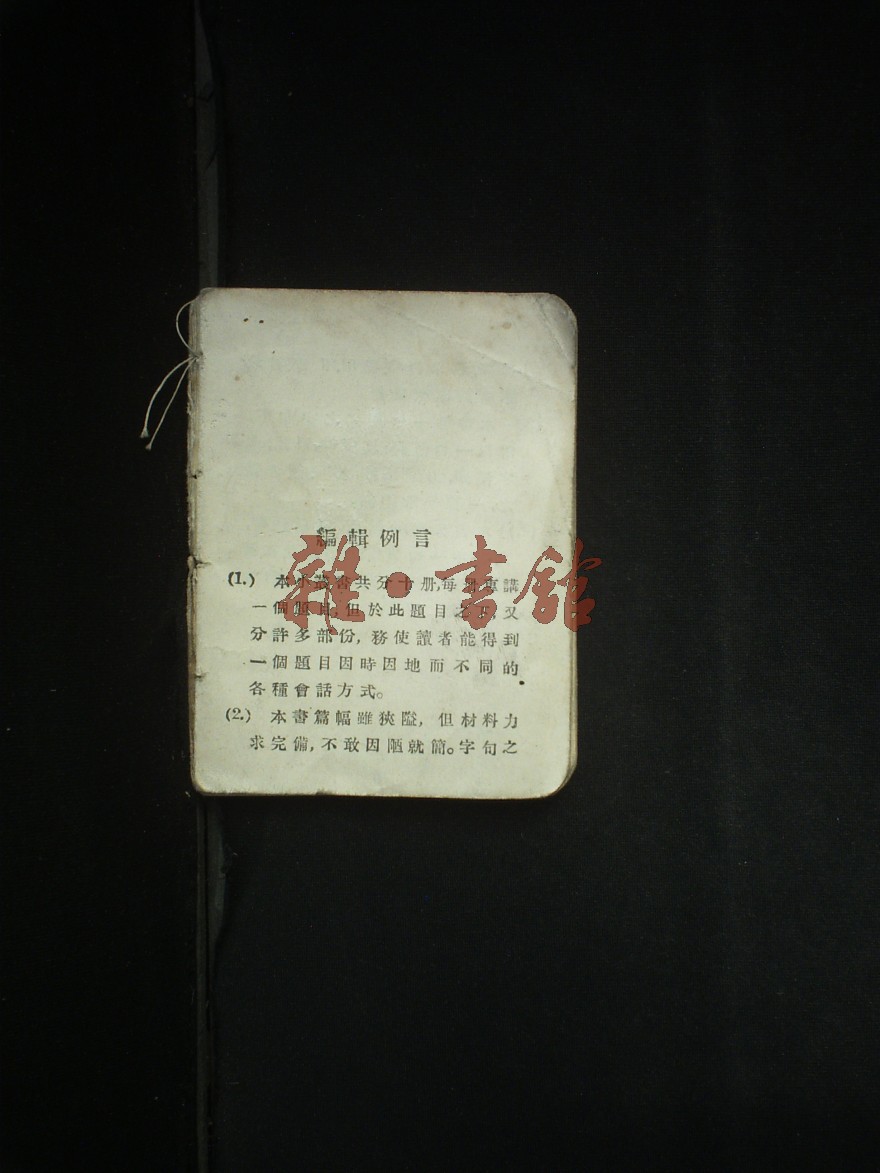 編輯例言
雜·書館
(1.) 本小叢書共分十册,每册專講
一個題目,但於此題目之下,又
分許多部份,務使讀者能得到
一個題目因時因地而不同的
各種會話方式。
(2.) 本書篇幅雖狹隘,但材料力
求完備,不敢因陋就簡。字句之